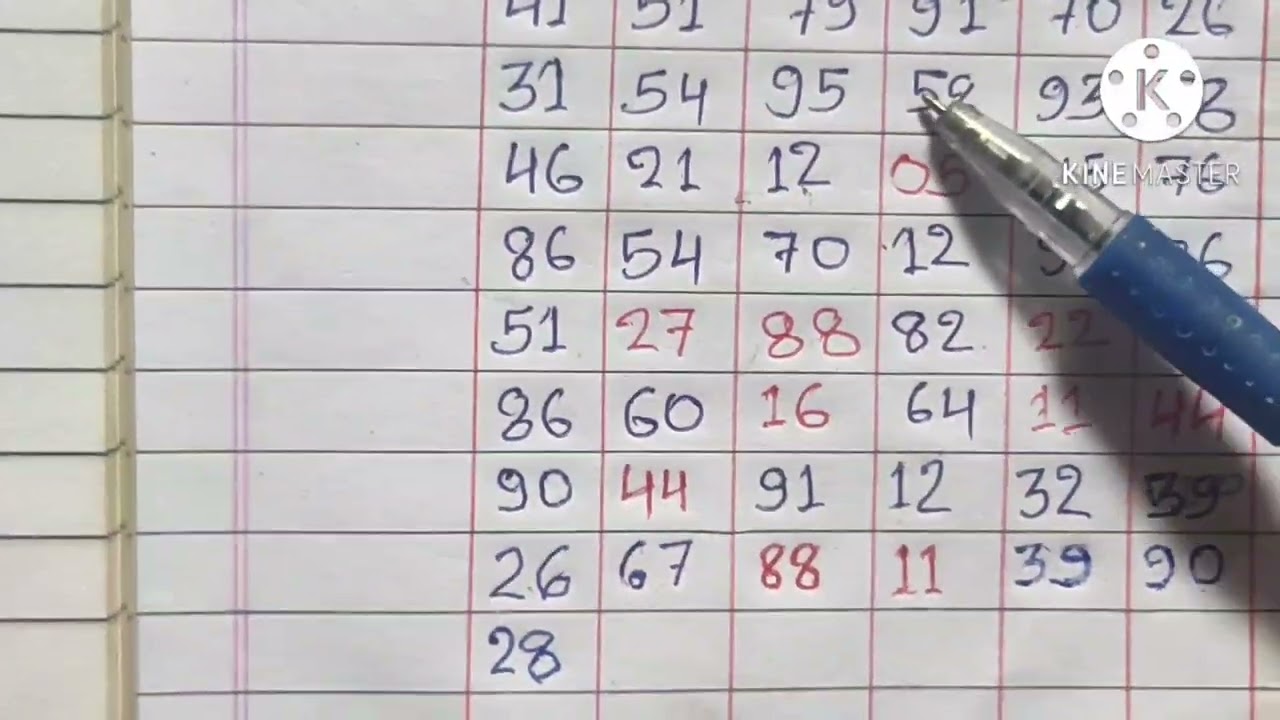 41 51 79 91 70 26
31 54 95 93
46 21 12 05 76
86 54 70 12
51 27 88 82 22
86 60 16 64 11 44
90 44 91 12 32 39
26 67 88 11 39 90
28
K
KINEMASTER